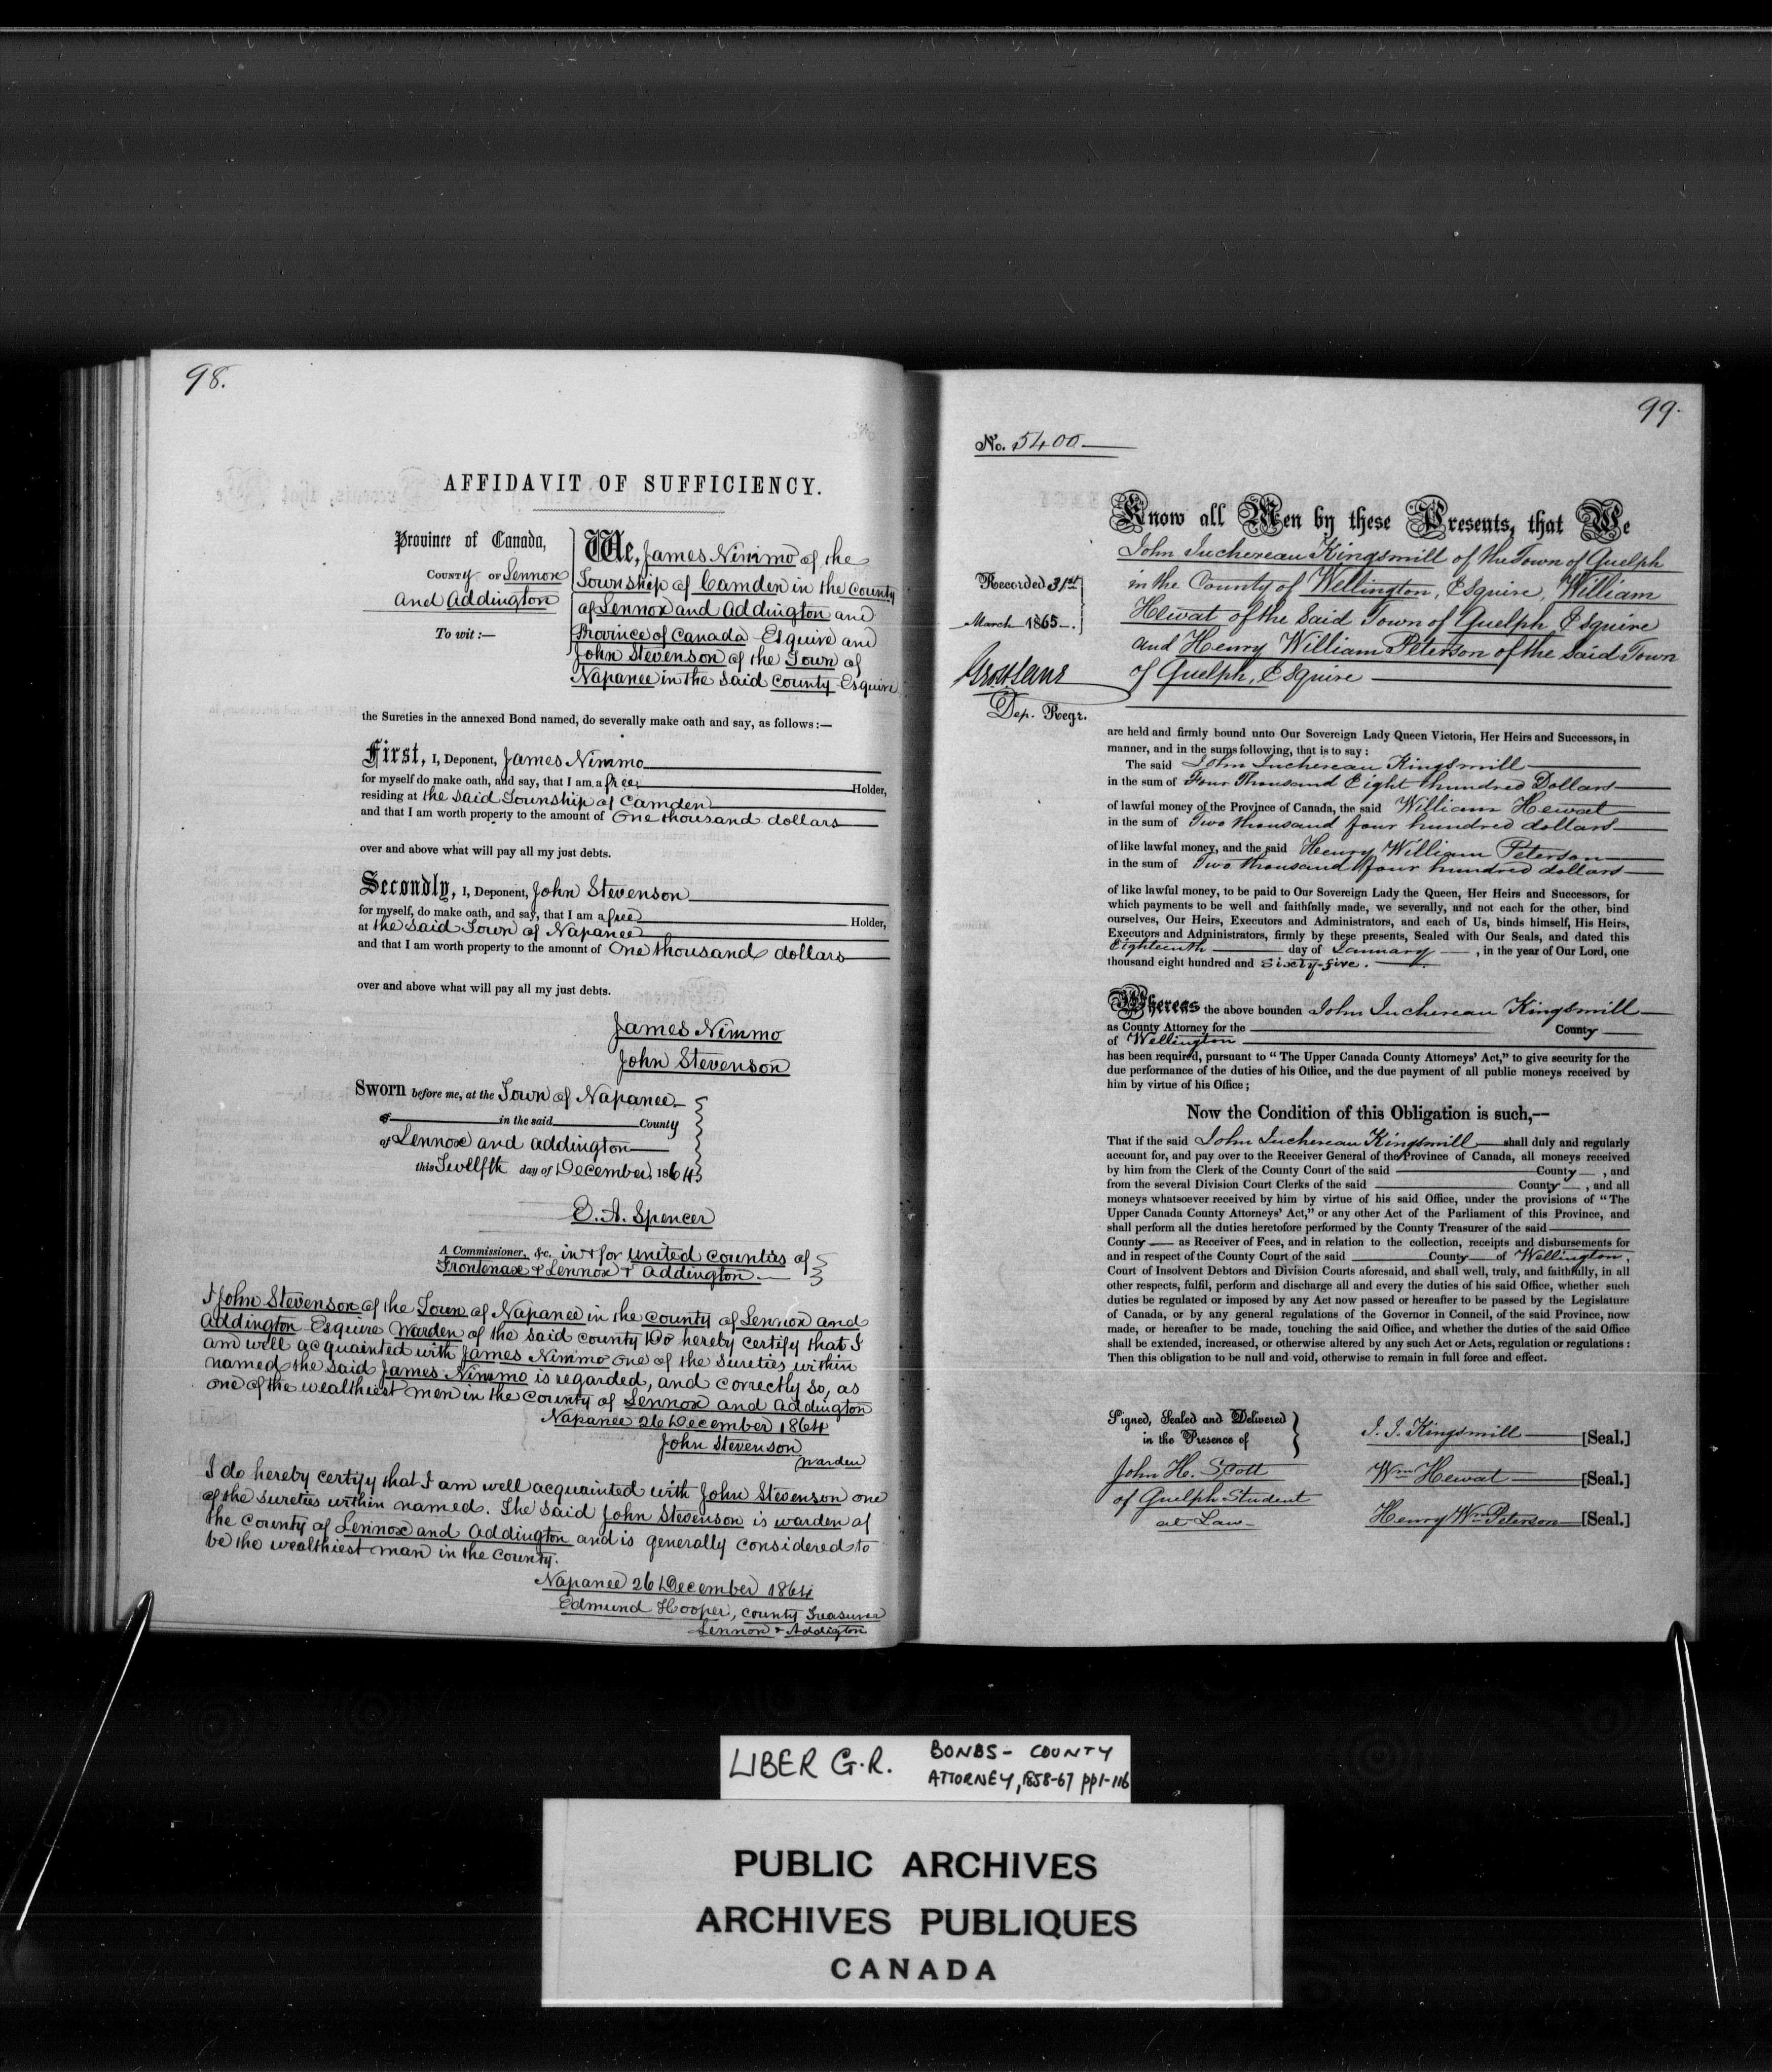 98.
AFFIDAVIT OF SUFFICIENCY.
Province of Canada,
County of Lennox
and Addington
To wit :—
We, James Nimmo of the
Township of Camden in the County
of Lennox and Addington and
Province of Canada Esquire and
John Stevenson of the Town of
Napanee in the said County Esquire
the Sureties in the annexed Bond named, do severally make oath and say, as follows :—
First, I, Deponent, James Nimmo
for myself do make oath, and say, that I am a free Holder,
residing at the said Township of Camden
and that I am worth property to the amount of One thousand dollars
over and above what will pay all my just debts.
Secondly, I, Deponent, John Stevenson
for myself, do make oath, and say, that I am a free Holder,
at the said Town of Napanee
and that I am worth property to the amount of One thousand dollars
over and above what will pay all my just debts.
James Nimmo
John Stevenson
Sworn before me, at the Town of Napanee
of in the said County
of Lennox and Addington
this Twelfth day of December, 1864
O. A. Spencer
A Commissioner, &c. in & for united counties of
Frontenac & Lennox & Addington
I John Stevenson of the Town of Napanee in the County of Lennox and
Addington Esquire Warden of the said county do hereby certify that I
am well acquainted with James Nimmo one of the sureties within
named the said James Nimmo is regarded, and correctly so, as
one of the wealthiest men in the County of Lennox and Addington
Napanee 26 December 1864
John Stevenson
Warden
I do hereby certify that I am well acquainted with John Stevenson one
of the sureties within named. The said John Stevenson is warden of
the County of Lennox and Addington and is generally considered to
be the wealthiest man in the County.
Napanee 26 December 1864
Edmund Hooper, County Treasurer
Lennox & Addigton
99.
No. 5400
Know all Men by these Presents, that We
John Juchereau Kingsmill of the Town of Guelph
in the County of Wellington, Esquire, William
Hewat of the Said Town of Guelph Esquire
and Henry William Peterson of the said Town
of Guelph, Esquire
Recorded 31st
March 1865.
Dep. Regr.
are held and firmly bound unto Our Sovereign Lady Queen Victoria, Her Heirs and Successors, in
manner, and in the sums following, that is to say :
The said John Juchereau Kingsmill
in the sum of Four Thousand Eight hundred Dollars
of lawful money of the Province of Canada, the said William Hewat
in the sum of Two thousand four hundred dollars
of like lawful money, and the said Henry William Peterson
in the sum of Two thousand four hundred dollars
of like lawful money, to be paid to Our Sovereign Lady the Queen, Her Heirs and Successors, for
which payments to be well and faithfully made, we severally, and not each for the other, bind
ourselves, Our Heirs, Executors and Administrators, and each of Us, binds himself, His Heirs,
Executors and Administrators, firmly by these presents, Sealed with Our Seals, and dated this
Eighteenth day of January , in the year of Our Lord, one
thousand eight hundred and sixty-five.
Whereas the above bounden John Juchereau Kingsmill
as County Attorney for the County
of Wellington
has been required, pursuant to "The Upper Canada County Attorneys' Act," to give security for the
due performance of the duties of his Office, and the due payment of all public moneys received by
him by virtue of his Office ;
Now the Condition of this Obligation is such,—
That if the said John Juchereau Kingsmill shall duly and regularly
account for, and pay over to the Receiver General of the Province of Canada, all moneys received
by him from the Clerk of the County Court of the said County , and
from the several Division Court Clerks of the said County , and all
moneys whatsoever received by him by virtue of his said Office, under the provisions of "The
Upper Canada County Attorneys' Act," or any other Act of the Parliament of this Province, and
shall perform all the duties heretofore performed by the County Treasurer of the said
County as Receiver of Fees, and in relation to the collection, receipts and disbursements for
and in respect of the County Court of the said County of Wellington,
Court of Insolvent Debtors and Division Courts aforesaid, and shall well, truly, and faithfully, in all
other respects, fulfil, perform and discharge all and every the duties of his said Office, whether such
duties be regulated or imposed by any Act now passed or hereafter to be passed by the Legislature
of Canada, or by any general regulations of the Governor in Council, of the said Province, now
made, or hereafter to be made, touching the said Office, and whether the duties of the said Office
shall be extended, increased, or otherwise altered by any such Act or Acts, regulation or regulations :
Then this obligation to be null and void, otherwise to remain in full force and effect.
Signed, Sealed and Delivered
in the Presence of
John H. Scott
of Guelph Student
at Law
J. J. Kingsmill [Seal.]
Wm Hewat [Seal.]
Henry Wm Peterson [Seal.]
LIBER G.R. BONDS - COUNTY
ATTORNEY, 1858-67 pp1-116
PUBLIC ARCHIVES
ARCHIVES PUBLIQUES
CANADA